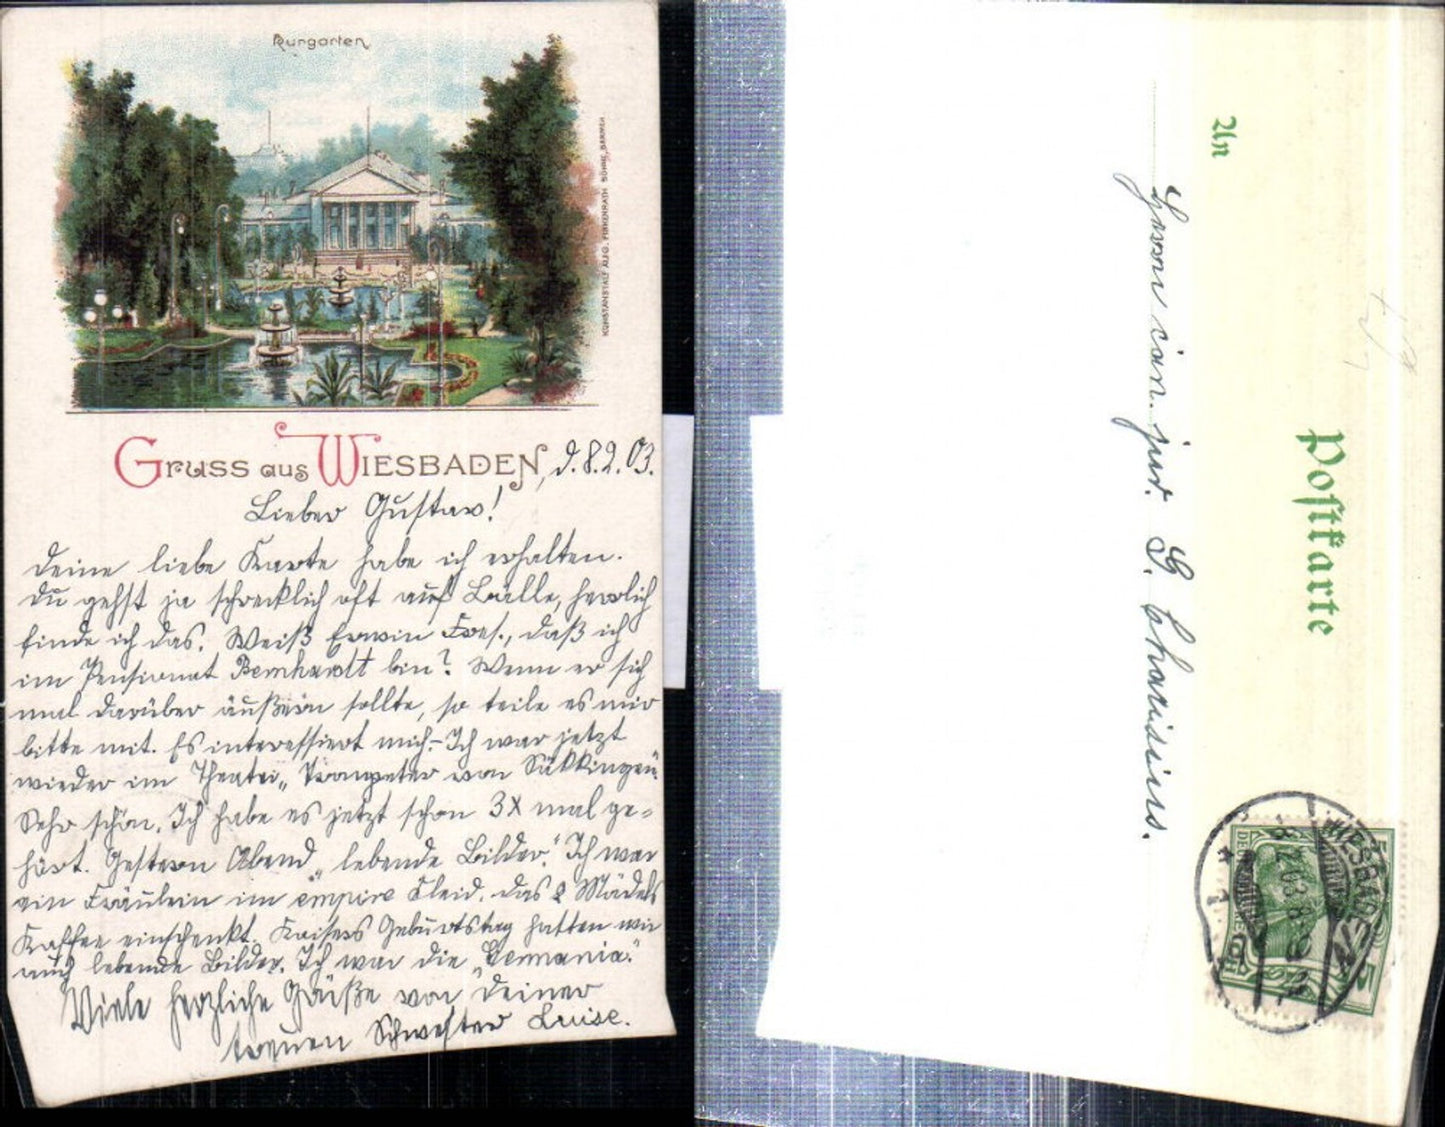 Kurgarten
KUNSTANSTALT AUG. FINKENRATH SÖHNE, BARMEN
Gruss aus Wiesbaden, d. 8.2.03.
Lieber Gustav!
Deine liebe Karte habe ich erhalten.
Du gehst ja schrecklich oft auf Bälle, herrlich
finde ich das. Weiß Erwin, daß ich
im Pensionat Bernhardt bin? Wenn er sich
mal darüber äußern sollte, so teile es mir
bitte mit. Es interessiert mich.- Ich war jetzt
wieder im Theater „Trompeter von Säkkingen".
Sehr schön. Ich habe es jetzt schon 3x mal ge-
hört. Gestern Abend „lebende Bilder." Ich war
ein Fräulein im empire Kleid, das 2 Mädels
Kaffee einschenkt. Kaisers Geburtstag hatten wir
auch lebende Bilder. Ich war die „Germania."
Viele herzliche Grüße von Deiner
treuen Schwester Luise.
An
Herrn can. jur. G.
Postkarte
WIESBADEN
8.2.03. 8-9 N.
1
5